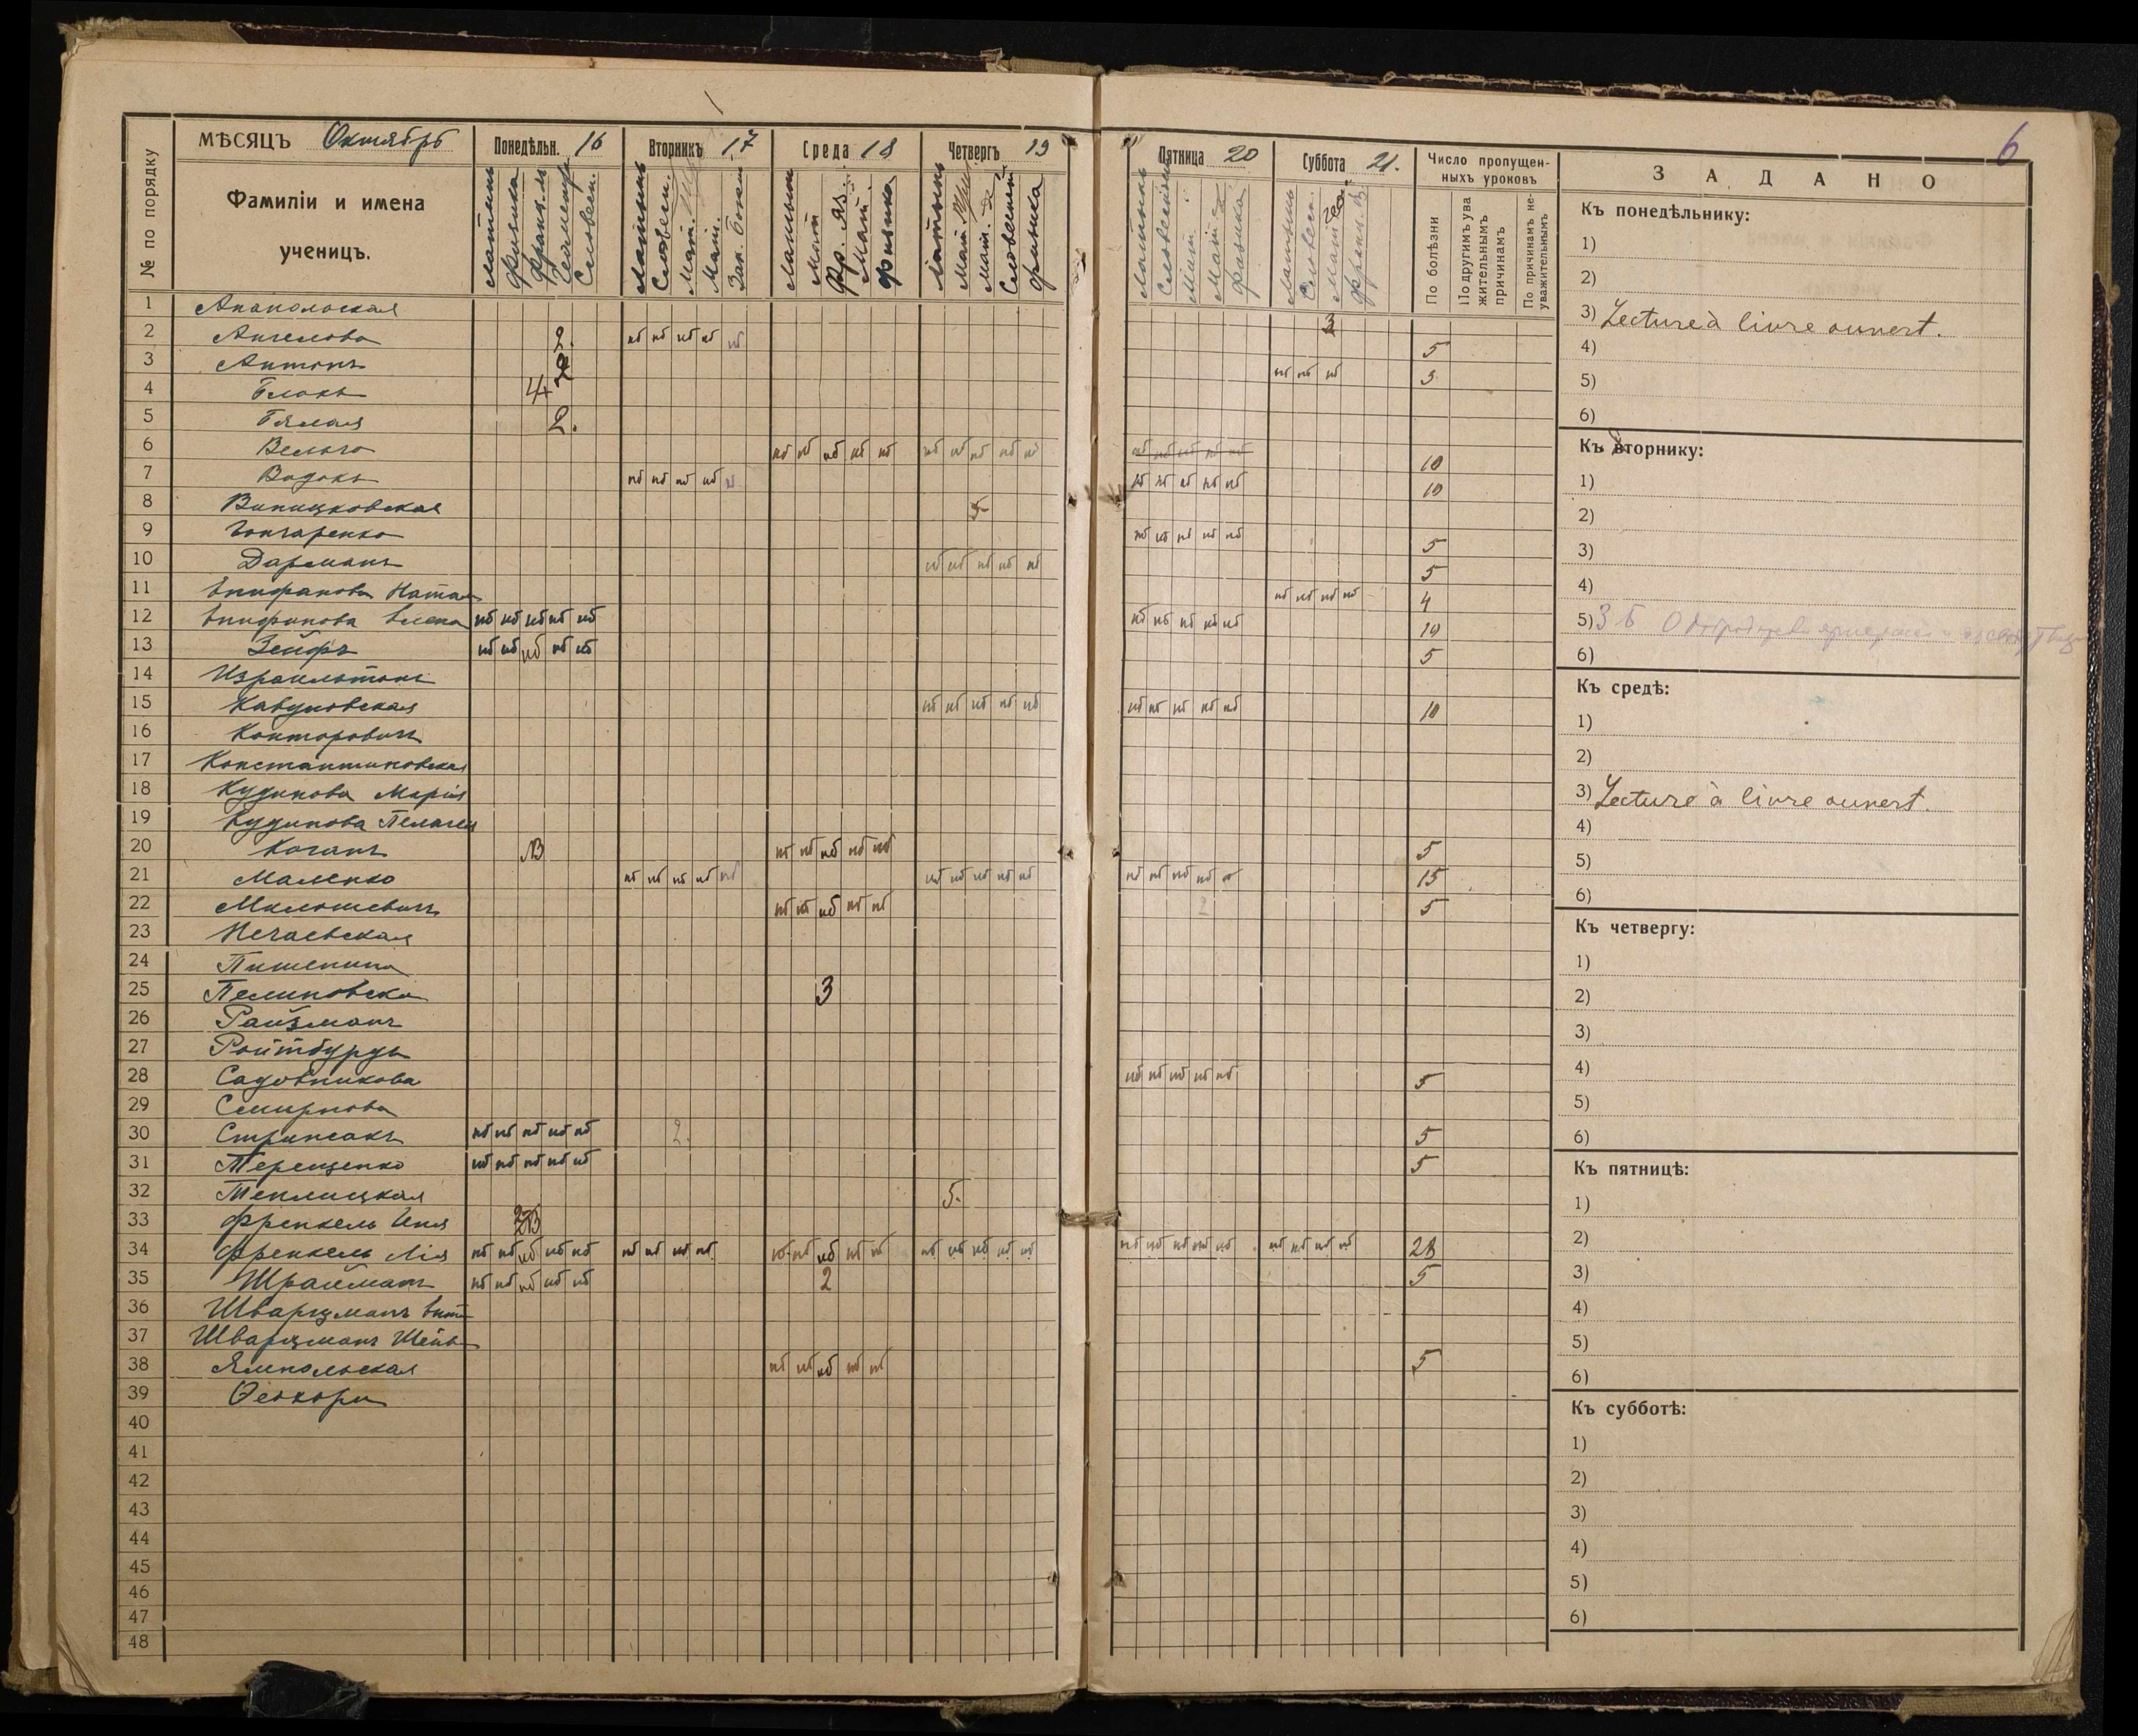 6
МѢСЯЦЪ Октябрь
№ по порядку
Фамиліи и имена
ученицъ.
Понедѣльн. 16
Латынь
Физика
Франц. яз
Словесн.
Вторникъ 17
Латынь
Словесн.
Мат.
Мат.
Зак. Божій
Среда 18
Латынь
Мат
Фр. яз.
Мат.
Физика
Четвергъ 19
Латынь
Мат.
Мат.
Словесность
Физика
Пятница 20
Латынь
Словесность
Мат
Мат
Физика
Суббота 21.
Латынь
Словесн.
Мат
Франц. яз
Число пропущен-
ныхъ уроковъ
По болѣзни
По другимъ ува
жительнымъ
причинамъ
По причинамъ не-
уважительнымъ
1 Анапольская 3
2 Ангелова 2. нб нб нб нб нб 5
3 Антонъ 2 нб нб нб 3
4 Блокъ 4
5 Бялая 2.
6 Вельго нб нб нб нб нб нб нб нб нб нб нб нб нб нб нб 10
7 Водакъ нб нб нб нб нб нб нб нб нб нб 10
8 Виницковская 5
9 Гончаренко нб нб нб нб нб 5
10 Дарманъ нб нб нб нб нб 5
11 Епифанова Натал нб нб нб нб 4
12 Епифанова Елена нб нб нб нб нб нб нб нб нб нб 10
13 Зейфъ нб нб нб нб нб 5
14 Израильтонъ
15 Кавуновская нб нб нб нб нб нб нб нб нб нб 10
16 Конторовичъ
17 Константиновская
18 Кудинова Марія
19 Кудинова Пелагея
20 Коганъ нб нб нб нб нб 5
21 Маленко нб нб нб нб нб нб нб нб нб нб нб нб нб нб нб 15
22 Милошевичъ нб нб нб нб нб 2 5
23 Нечаевская
24 Пишенина
25 Пелиновска 3
26 Райзманъ
27 Ройтбурдъ
28 Садовникова нб нб нб нб нб 5
29 Смирнова
30 Стринсакъ нб нб нб нб нб 2. 5
31 Терещенко нб нб нб нб нб 5
32 Теплицкая 5.
33 Френкель Иня
34 Френкель Лія нб нб нб нб нб нб нб нб нб нб нб нб нб нб нб нб нб нб нб нб нб нб нб нб нб нб нб нб 28
35 Шрайманъ нб нб нб нб нб 2 5
36 Шварцманъ
37 Шварцманъ Шейв
38 Ямпольская нб нб нб нб нб 5
39 Ѳеохари
40
41
42
43
44
45
46
47
48
ЗАДАНО
Къ понедѣльнику:
1)
2)
3) Lecture à livre ouvert.
4)
5)
6)
Къ вторнику:
1)
2)
3)
4)
5) З Б О
6)
Къ средѣ:
1)
2)
3) Lecture à livre ouvert.
4)
5)
6)
Къ четвергу:
1)
2)
3)
4)
5)
6)
Къ пятницѣ:
1)
2)
3)
4)
5)
6)
Къ субботѣ:
1)
2)
3)
4)
5)
6)